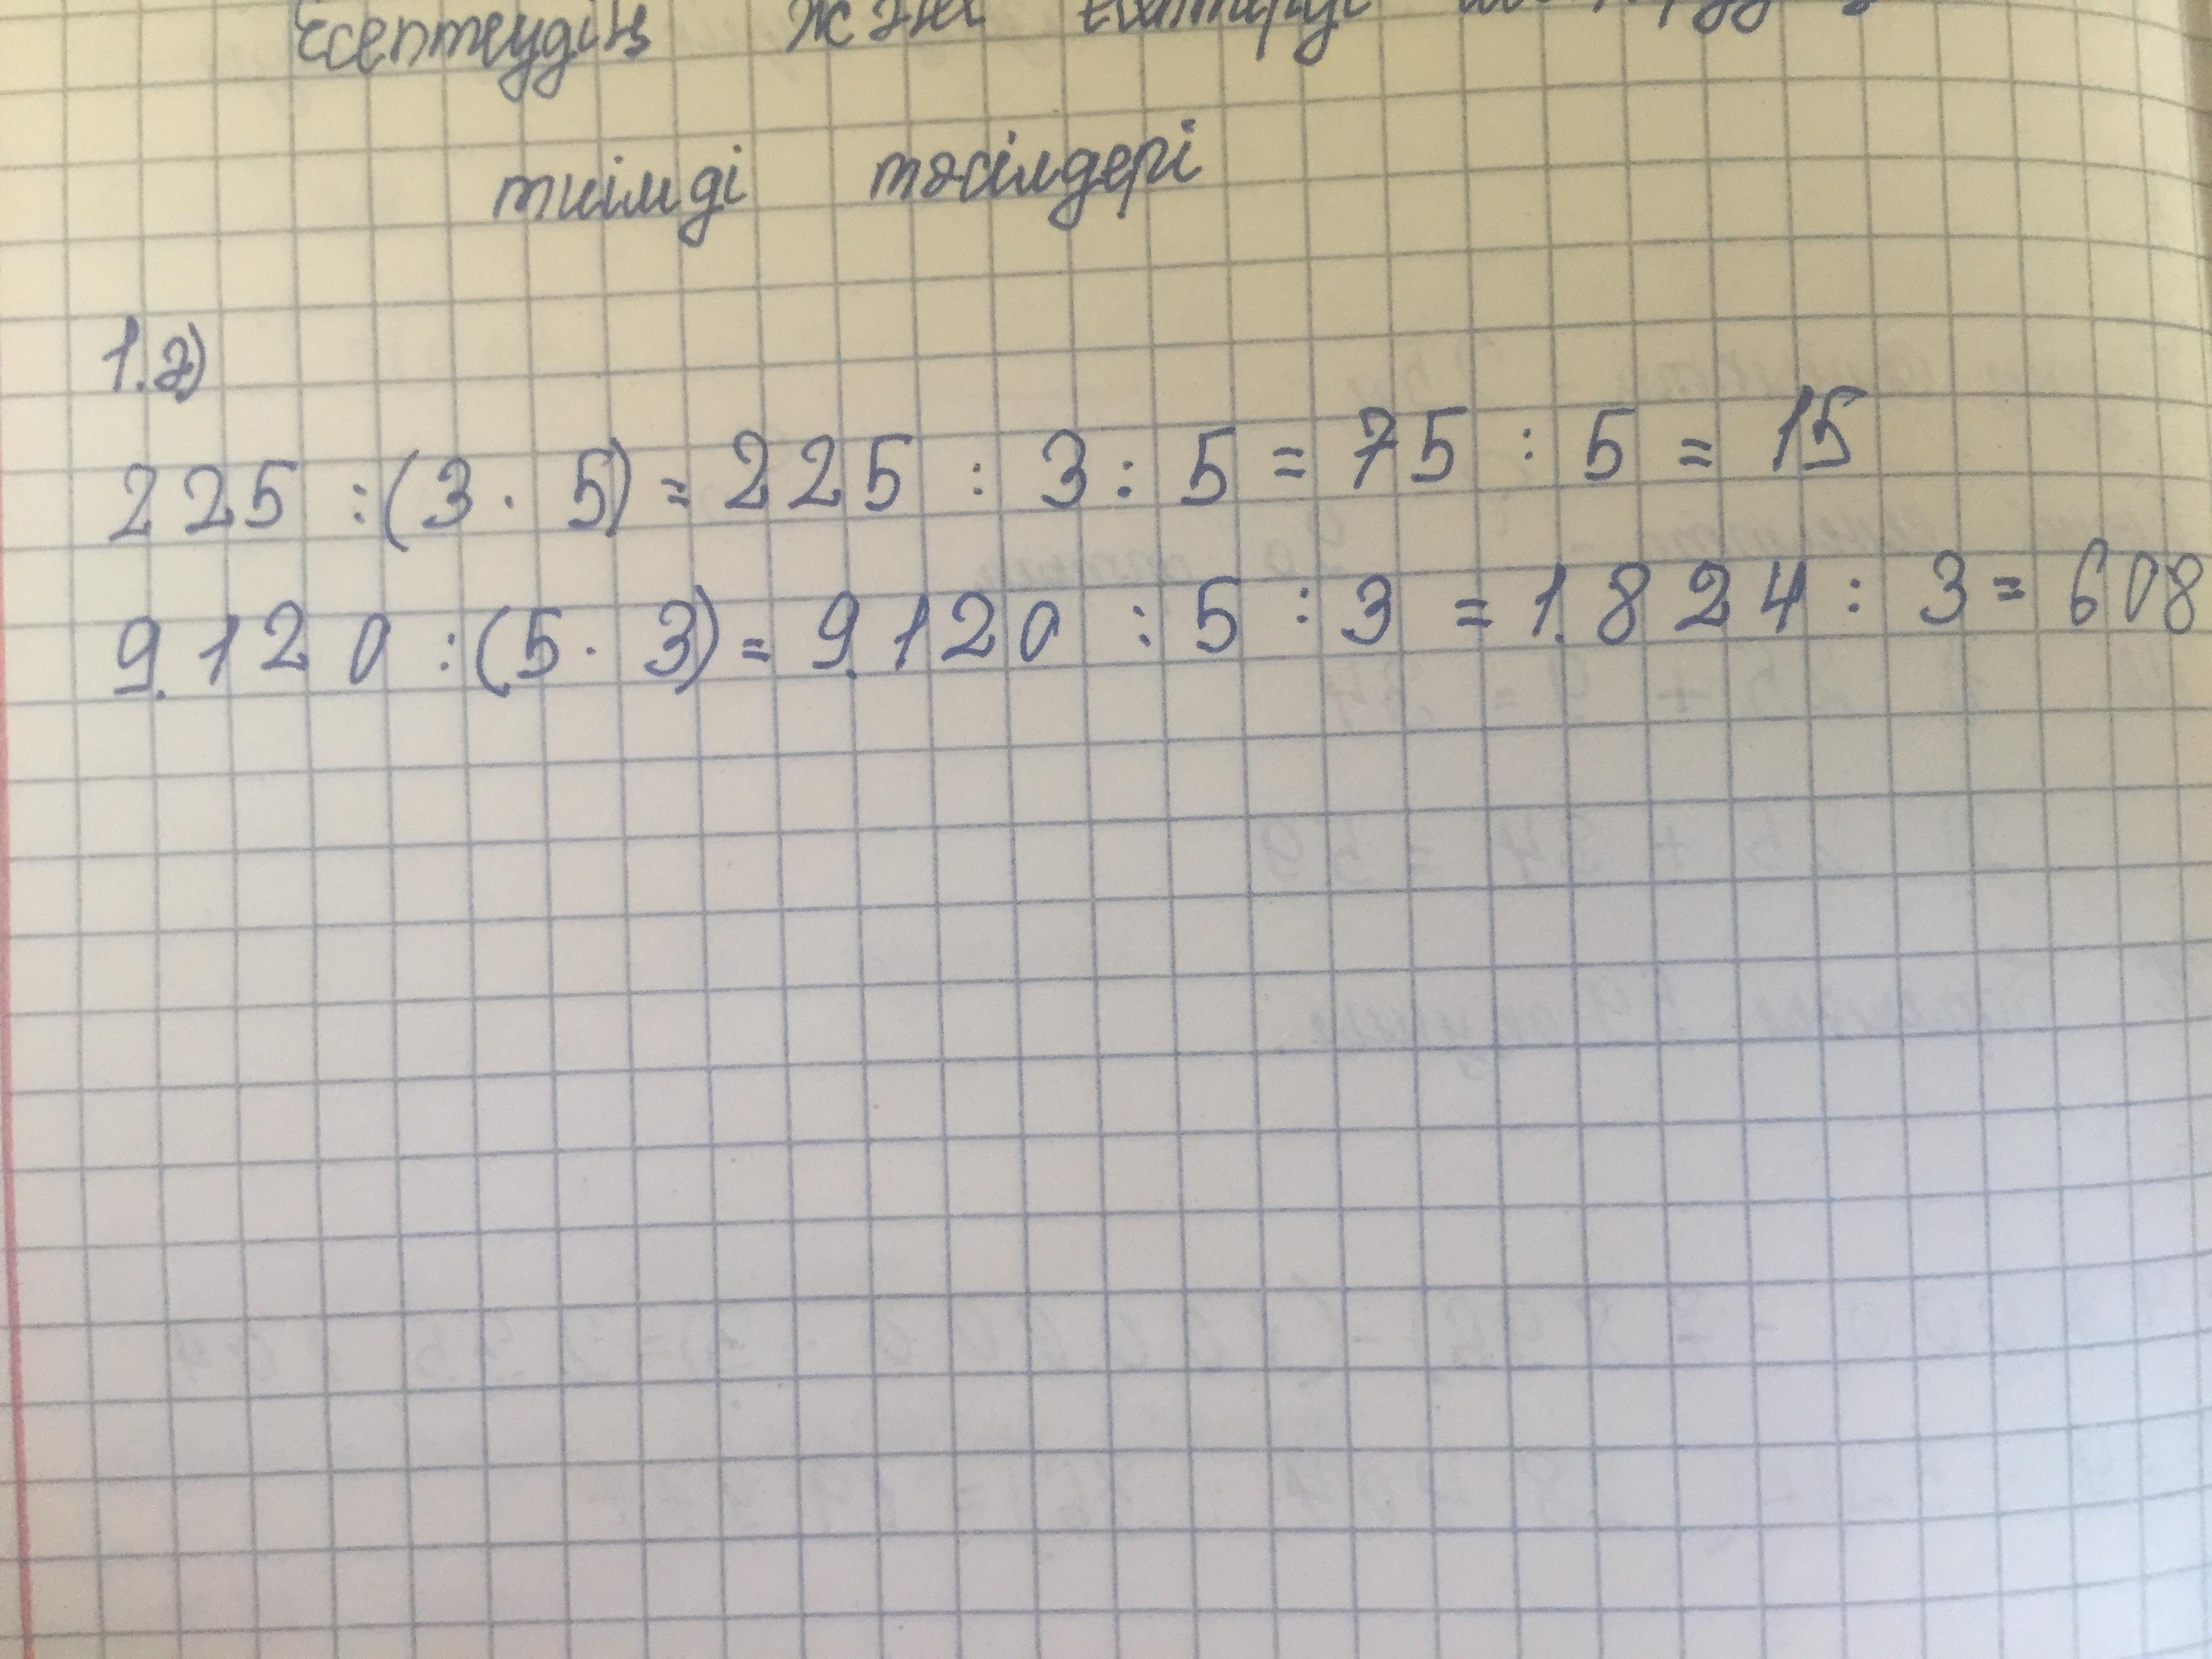 Есептеудің және есептерді
тиімді тәсілдері
1.ә)
225 : (3 · 5) = 225 : 3 : 5 = 75 : 5 = 15
9.120 : (5 · 3) = 9.120 : 5 : 3 = 1.824 : 3 = 608